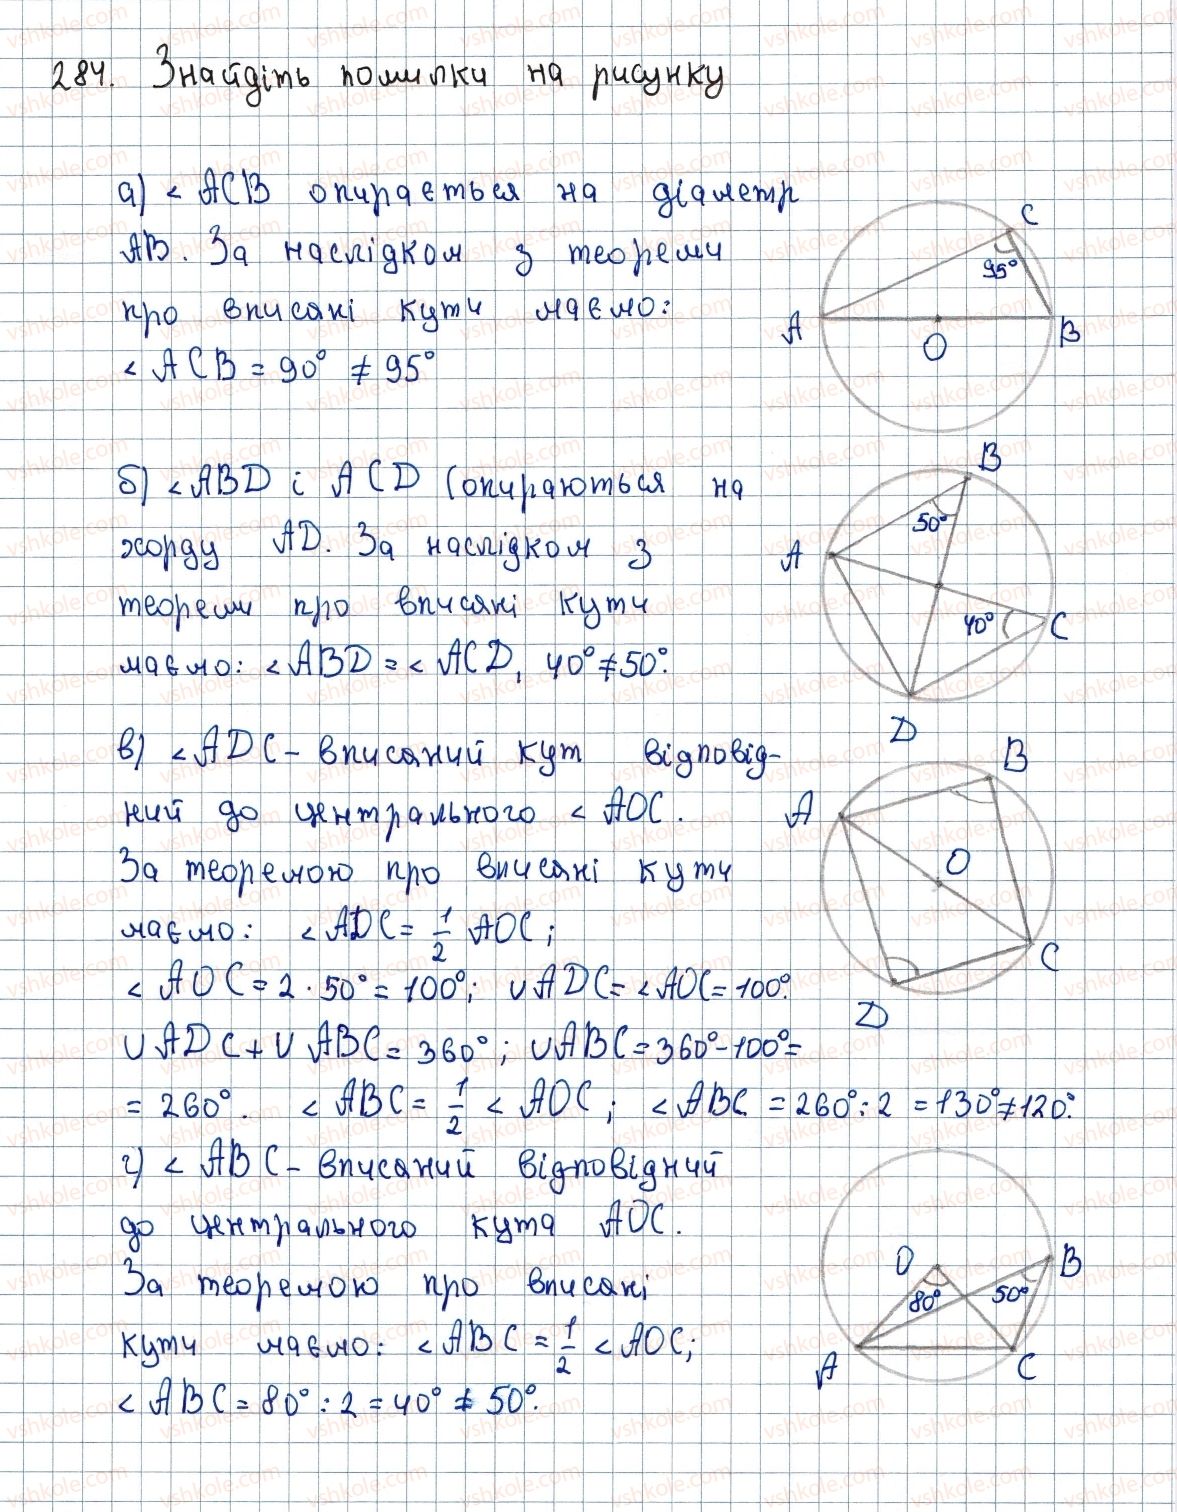 284. Знайдіть помилки на рисунку
а) < ACB опирається на діаметр
AB. За наслідком з теореми
про вписані кути маємо:
< ACB = 90° ≠ 95°
C
95°
A
O
B
б) < ABD і ACD (опираються на
хорду AD. За наслідком з
теореми про вписані кути
маємо: < ABD = < ACD, 40° ≠ 50°.
B
50°
A
40°
C
D
в) < ADC - вписаний кут відповід-
ний до центрального < AOC.
За теоремою про вписані кути
маємо: < ADC = 1/2 AOC;
< AOC = 2 · 50° = 100°; ∪ ADC = < AOC = 100°.
∪ ADC + ∪ ABC = 360°; ∪ ABC = 360° - 100° =
= 260°. < ABC = 1/2 < AOC; < ABC = 260° : 2 = 130° ≠ 120°.
B
A
O
C
D
г) < ABC - вписаний відповідний
до центрального кута AOC.
За теоремою про вписані
кути маємо: < ABC = 1/2 < AOC;
< ABC = 80° : 2 = 40° ≠ 50°.
O
B
80°
50°
A
C
vshkole.com